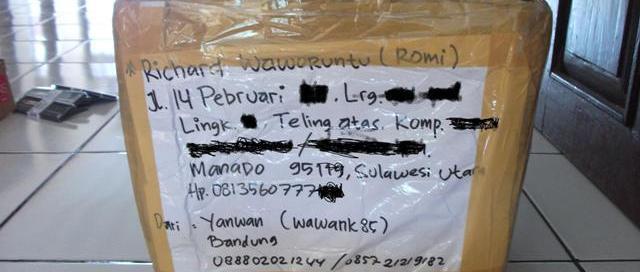 * Richard Waworuntu (Romi)
Jl. 14 Pebruari . Lrg.
Lingk. Teling atas. Komp.
/ .
Manado 95119, Sulawesi Utara
Hp. 0813560777
Dari : Yanwan (wawank85)
Bandung
088802021244 / 085721219182